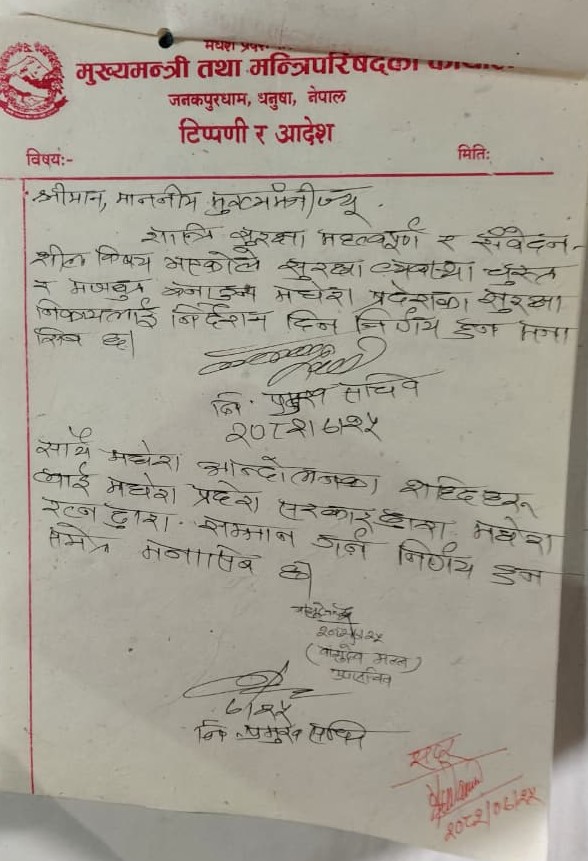 मुख्यमन्त्री तथा मन्त्रिपरिषद्को
जनकपुरधाम, धनुषा, नेपाल
टिप्पणी र आदेश
विषयः-
मितिः
श्रीमान्, माननीय मुख्यमंत्रीज्यू.
शान्ति सुरक्षा महत्वपूर्ण र संवेदन-
शील विषय भएकोले सुरक्षा व्यवस्था चुस्त
र मजबुत बनाउन मधेश प्रदेशका सुरक्षा
निकायलाई निर्देशन दिन निर्णय हुन मना
सिब छ।
नि. प्रमुख सचिव
२०८२।६।२५
साथै मधेश आन्दोलनका शहिदहरू
लाई मधेश प्रदेश सरकारद्वारा मधेश
रत्न द्वारा सम्मान गर्न निर्णय हुन
समेत मनासिब छ।
६।२५
नि. प्रमुख सचिव
सदर
२०८२/०६/२५